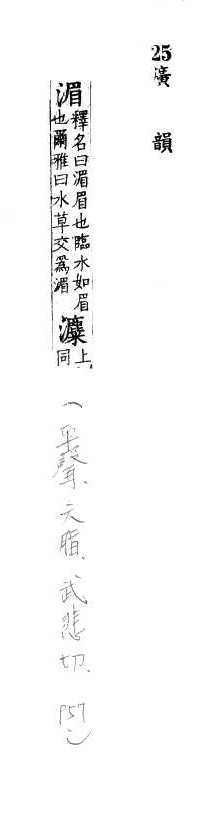 25廣韻
湄釋名曰湄眉也臨水如眉
也爾雅曰水草交為湄
㵟上同
（平聲、六脂、武悲切、P57）